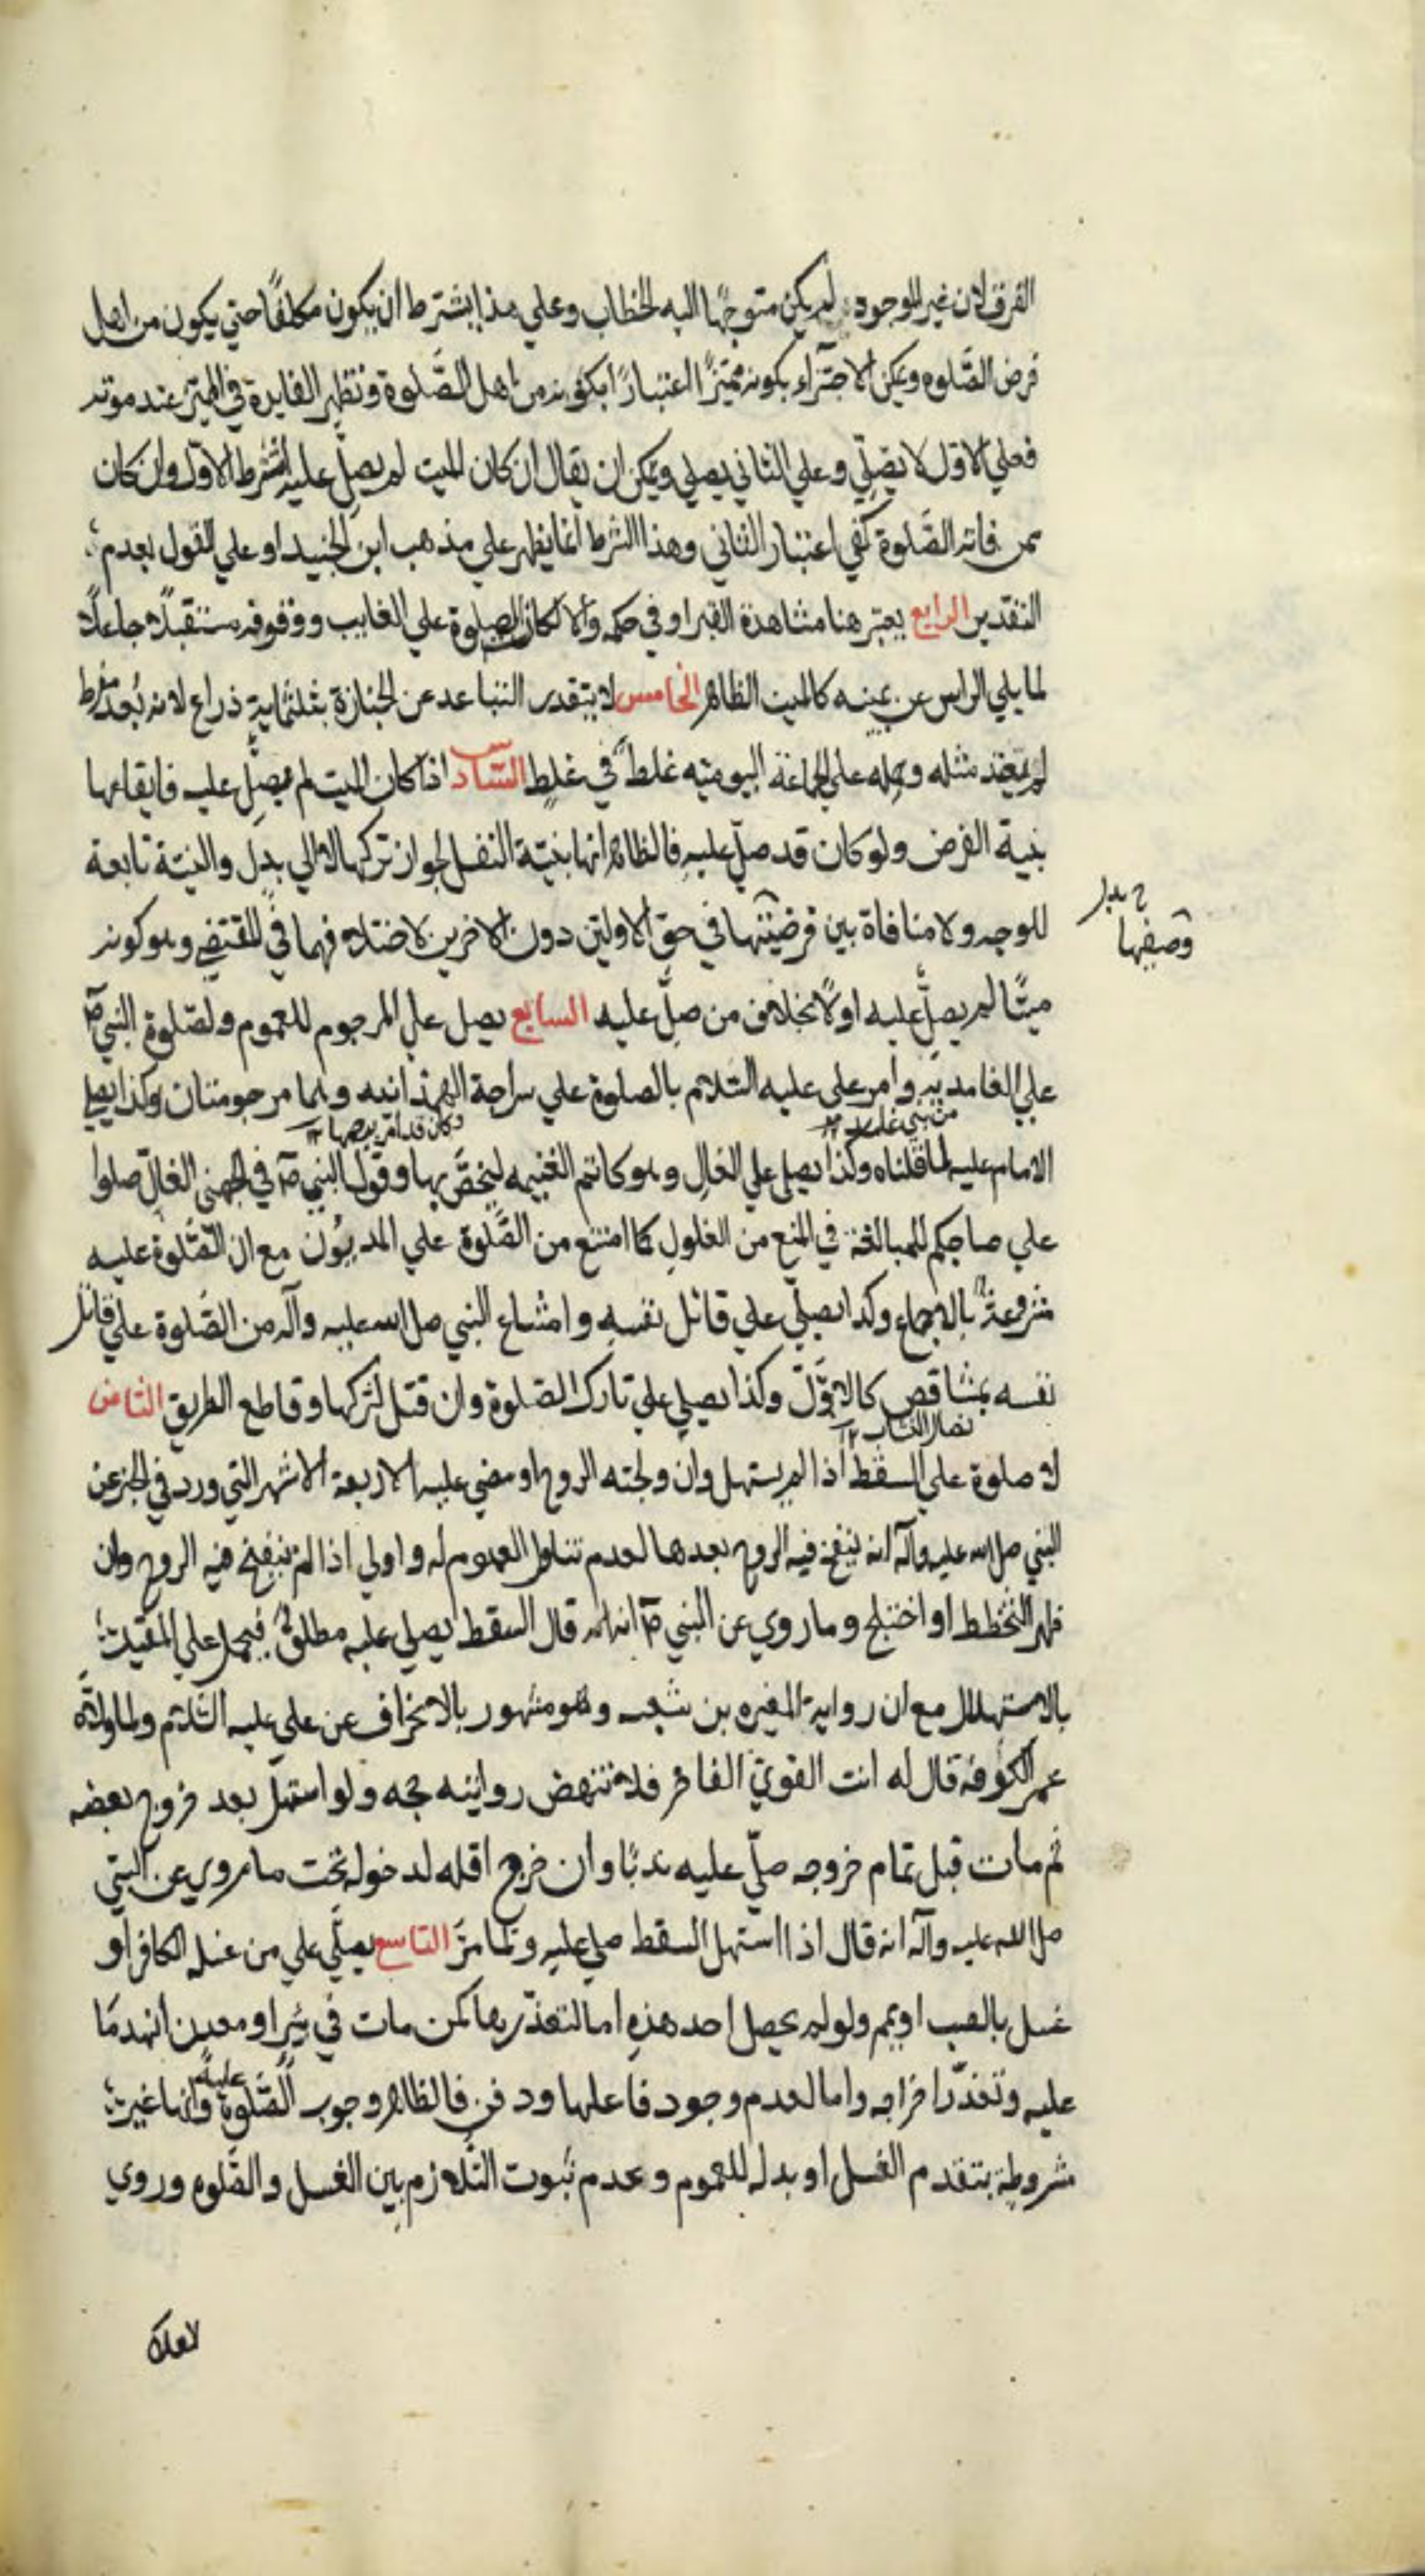 الفرق لان غير الموجود لم يكن متوجها اليه الخطاب وعلي هذا يشترط ان يكون مكلفًا حتي يكون من اهل
فرض الصَّلوه ويمكن الاجتزاء بكونه مميّزًا اعتبارًا بكونه من اهل الصَّلوة وتظهر الفايدة في المميّز عند موته
فعلي الاول لا يصلّي وعلي الثاني يصلي ويمكن ان يقال ان كان الميت لم يصلّ عليه اشترط الاول وان كان
ممن فاته الصَّلوة كفي اعتبار الثاني وهذا الشرط انما يظهر علي مذهب ابن الجنيد او علي القول بعدم
التقدير الرابع يعتبر هنا مشاهدة القبر او في حكمه والا لكان الصلوة علي الغايب ووقوفه مستقبلًا جاعلًا
لما يلي الراس عن يمينه كالميت الظاهر الخامس لا يتقدر التباعد عن الجنازة بثلثماية ذراع لانه بُعد مفرط
لم يعهد مثله وحمله علي الجماعة اليوميه غلط في غلط السادس اذا كان الميت لم يصلّ عليه فايقاعها
بنية الفرض ولو كان قد صلّي عليه فالظاهر انها بنيّة النفل لجواز تركها لا الي بدل والنيّة تابعة
للوجه ولا منافاة بين فرضيتها في حق الاولين دون الاخرين لاختلافهما في المقتضي وهو كونه
ح بدل
وصفيها
ميتًا لم يصلّ عليه اولًا بخلاف من صلّ عليه السابع يصل علي المرجوم للعموم ولصّلوة النبي ص
علي الغامديّه وامر علي عليه السّلام بالصلوة علي سراجة الهمدانيه وهما مرجومتان وكذا يصلي
من بني غامد وكان قد امر برجمها
الامام عليه لما قلناه وكذا يصلي علي الغالّ وهو كاتم الغنيمه ليختصَّ بها وقول النبي ص في الجهني الغالّ صلوا
علي صاحبكم للمبالغة في المنع من الغلول كما امتنع من الصَّلوة علي المديُون مع ان الصَّلوة عليه
مشروعة بالاجماع وكذا يصلّي علي قاتل نفسه وامتناع النبي صلي الله عليه وآله من الصَّلوة علي قاتل
نفسه بمشاقص كالاوَّل وكذا يصلي علي تارك الصّلوة وان قتل لتركها وقاطع الطريق الثامن
نصال النشاب
لا صلوة علي السقط اذا لم يستهل وان ولجته الروح او مضي عليه الاربعة الاشهر التي ورد في الخبر عن
النبي صلي الله عليه وآله انه ينفخ فيه الروح بعدها لعدم تناول العموم له واولي اذا لم ينفخ فيه الروح وان
ظهر التخطط او اختلج وما روي عن النبي ص انه قال السقط يصلي عليه مطلق فيحمل علي المقيد
بالاستهلال مع ان رواية المغيره بن شعبه وهو مشهور بالانحراف عن علي عليه السّلام ولما ولاّه
عمر الكوفة قال له انت القويّ الفاجر فلا تنهض روايته حجه ولو استهلّ بعد خروج بعضه
ثم مات قبل تمام خروجه صلّي عليه ندبًا وان خرج اقله لدخوله تحت ما روي عن النبي
صلي الله عليه وآله انه قال اذا استهل السقط صلي عليه ولما مرّ التاسع يصلّي علي من غسله الكافر او
غسل بالصب او يمم ولو لم يحصل احد هذه اما لتعذّرها كمن مات في بئر او معدن انهدما
عليه وتعذّر اخراجه واما لعدم وجود فاعلها ودفن فالظاهر وجوب الصَّلوة عليه وانها غير
مشروطة بتقدم الغسل او بدله للعموم وعدم ثبوت التَّلازم بين الغسل والصّلوه وروي